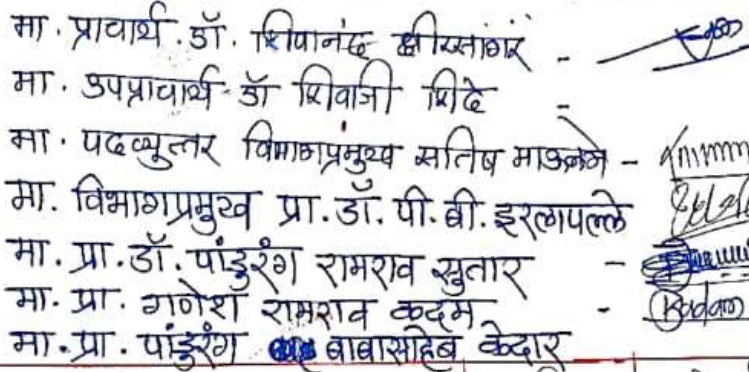 मा. प्राचार्य. डॉ. शिवानंद क्षीरसागर -
मा. उपप्राचार्य डॉ शिवाजी शिंदे -
मा. पदव्युत्तर विभागप्रमुख सतिष माऊलगे -
मा. विभागप्रमुख प्रा.डॉ. पी.बी. इरलापल्ले
मा. प्रा. डॉ. पांडुरंग रामराव सुतार -
मा. प्रा. गणेश रामराव कदम - Kadam
मा. प्रा. पांडुरंग बाबासाहेब केदार